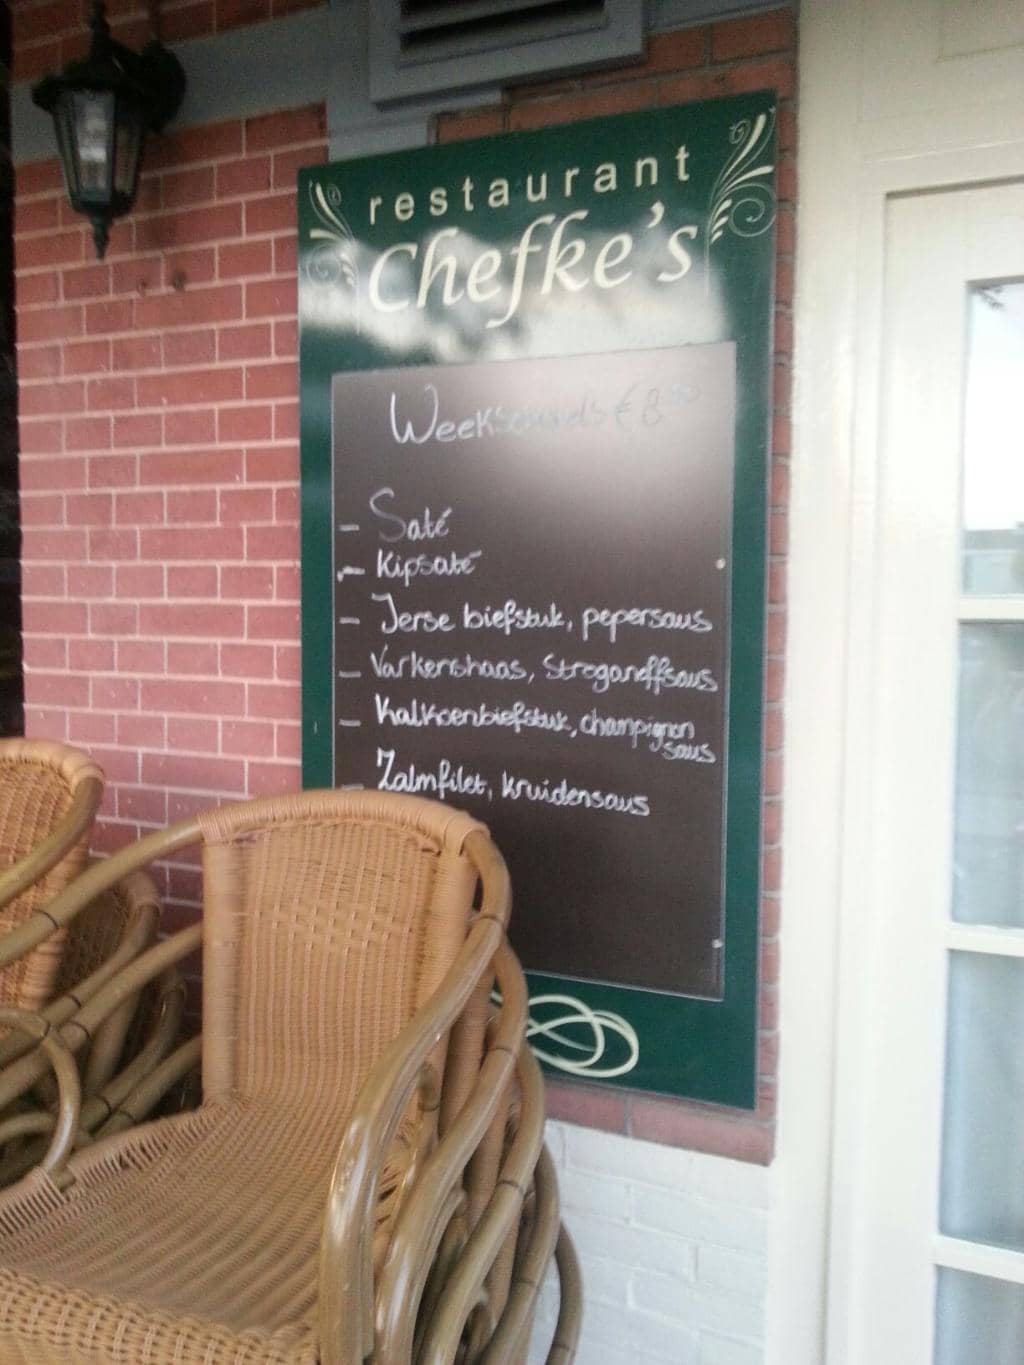 restaurant
Chefke's
Weekschotels € 8,50
- Saté
- Kipsaté
- Ierse biefstuk, pepersaus
- Varkenshaas, Stroganoffsaus
- Kalkoenbiefstuk, champignon
saus
- Zalmfilet, kruidensaus